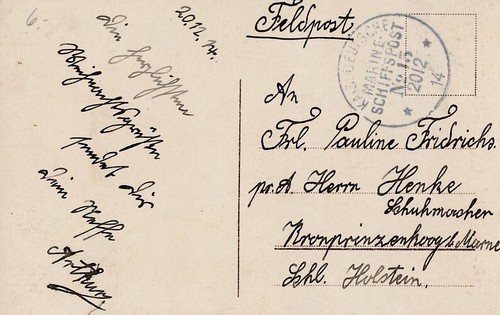 6.
20.12.14.
Die herzlichsten
Weihnachtsgrüße
sendet Dir
Dein Neffe
Arthur.
Feldpost
KAIS. DEUTSCHE
MARINE-
SCHIFFSPOST
No 15
20 12
14
An
Frl. Pauline Fridrichs.
pr. A Herrn Henke
Schuhmacher
Kronprinzenkoog b/Marne
Schl. Holstein.